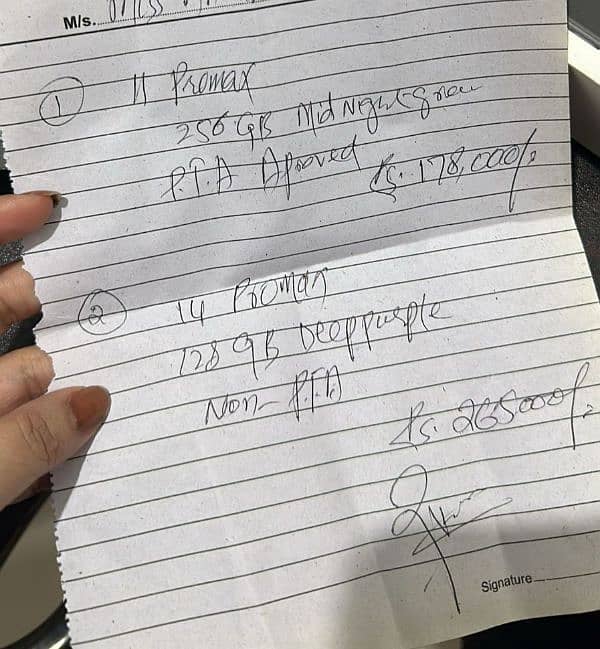 M/s.
① 11 Promax
256 GB Mid Night Green
P.T.A Aproved
Rs. 178,000/=
② 14 Promax
128 GB Deeppurple
Non-P.T.A
Rs. 265000/=
Signature